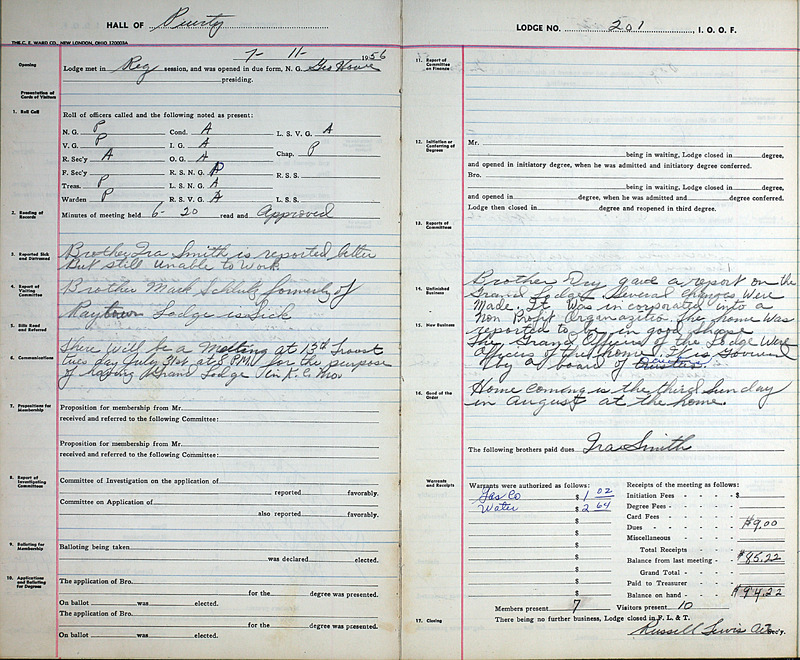 HALL OF Purity
THE C. E. WARD CO., NEW LONDON, OHIO 120003A
7- 11- 1956
Opening
Lodge met in Reg session, and was opened in due form, N. G. Geo Howe
presiding.
Presentation of Cards of Visitors
1. Roll Call
Roll of officers called and the following noted as present:
N. G. P Cond. A L. S. V. G. A
V. G. P I. G. A Chap. P
R. Sec'y A O. G. A
F. Sec'y R. S. N. G. P R. S. S.
Treas. P L. S. N. G. A
Warden P R. S. V. G. A L. S. S.
2. Reading of Records
Minutes of meeting held 6- 20 read and Approved
3. Reported Sick and Distressed
Brother Ira Smith is reported better
But still unable to Work.
4. Report of Visiting Committee
Brother Mark Schultz, formerly of
Raytown Lodge is Sick
5. Bills Read and Referred
6. Communications
There will be a Meeting at 13th Troost
Tues day July 31st at 8 P.M. for the purpose
of having a Grand Lodge in K.C. Mo.
7. Propositions for Membership
Proposition for membership from Mr.
received and referred to the following Committee:
Proposition for membership from Mr.
received and referred to the following Committee:
8. Report of Investigating Committees
Committee of Investigation on the application of
reported favorably.
Committee on Application of
also reported favorably.
9. Balloting for Membership
Balloting being taken
was declared elected.
10. Applications and Balloting for Degrees
The application of Bro.
for the degree was presented.
On ballot was elected.
The application of Bro.
for the degree was presented.
On ballot was elected.
LODGE NO. 201 , I. O. O. F.
11. Report of Committee on Finance
12. Initiation or Conferring of Degrees
Mr.
being in waiting, Lodge closed in degree,
and opened in initiatory degree, when he was admitted and initiatory degree conferred.
Bro.
being in waiting, Lodge closed in degree,
and opened in degree, when he was admitted and degree conferred.
Lodge then closed in degree and reopened in third degree.
13. Reports of Committees
14. Unfinished Business
Brother Dry gave a report on the
Grand Lodge. Several Changes Were
Made, It Was in corporated into a
Non Profit Organazition. The Home Was
15. New Business
reported to be in good shape
The Grand Officers of the Lodge Were
Officers of the home. This Governed
by a board of
16. Good of the Order
Home coming is the third Sunday
in August at the home.
The following brothers paid dues Ira Smith
Warrants and Receipts
Warrants were authorized as follows:
Gas Co $ 1 02
Water $ 2 64
$
$
$
$
$
$
$
Receipts of the meeting as follows:
Initiation Fees - - $
Degree Fees
Card Fees
Dues $9.00
Miscellaneous
Total Receipts
Balance from last meeting $85.22
Grand Total
Paid to Treasurer
Balance on hand $94.22
Members present 7 Visitors present 10
17. Closing
There being no further business, Lodge closed in F. L. & T.
Russell Lewis Sec'y.